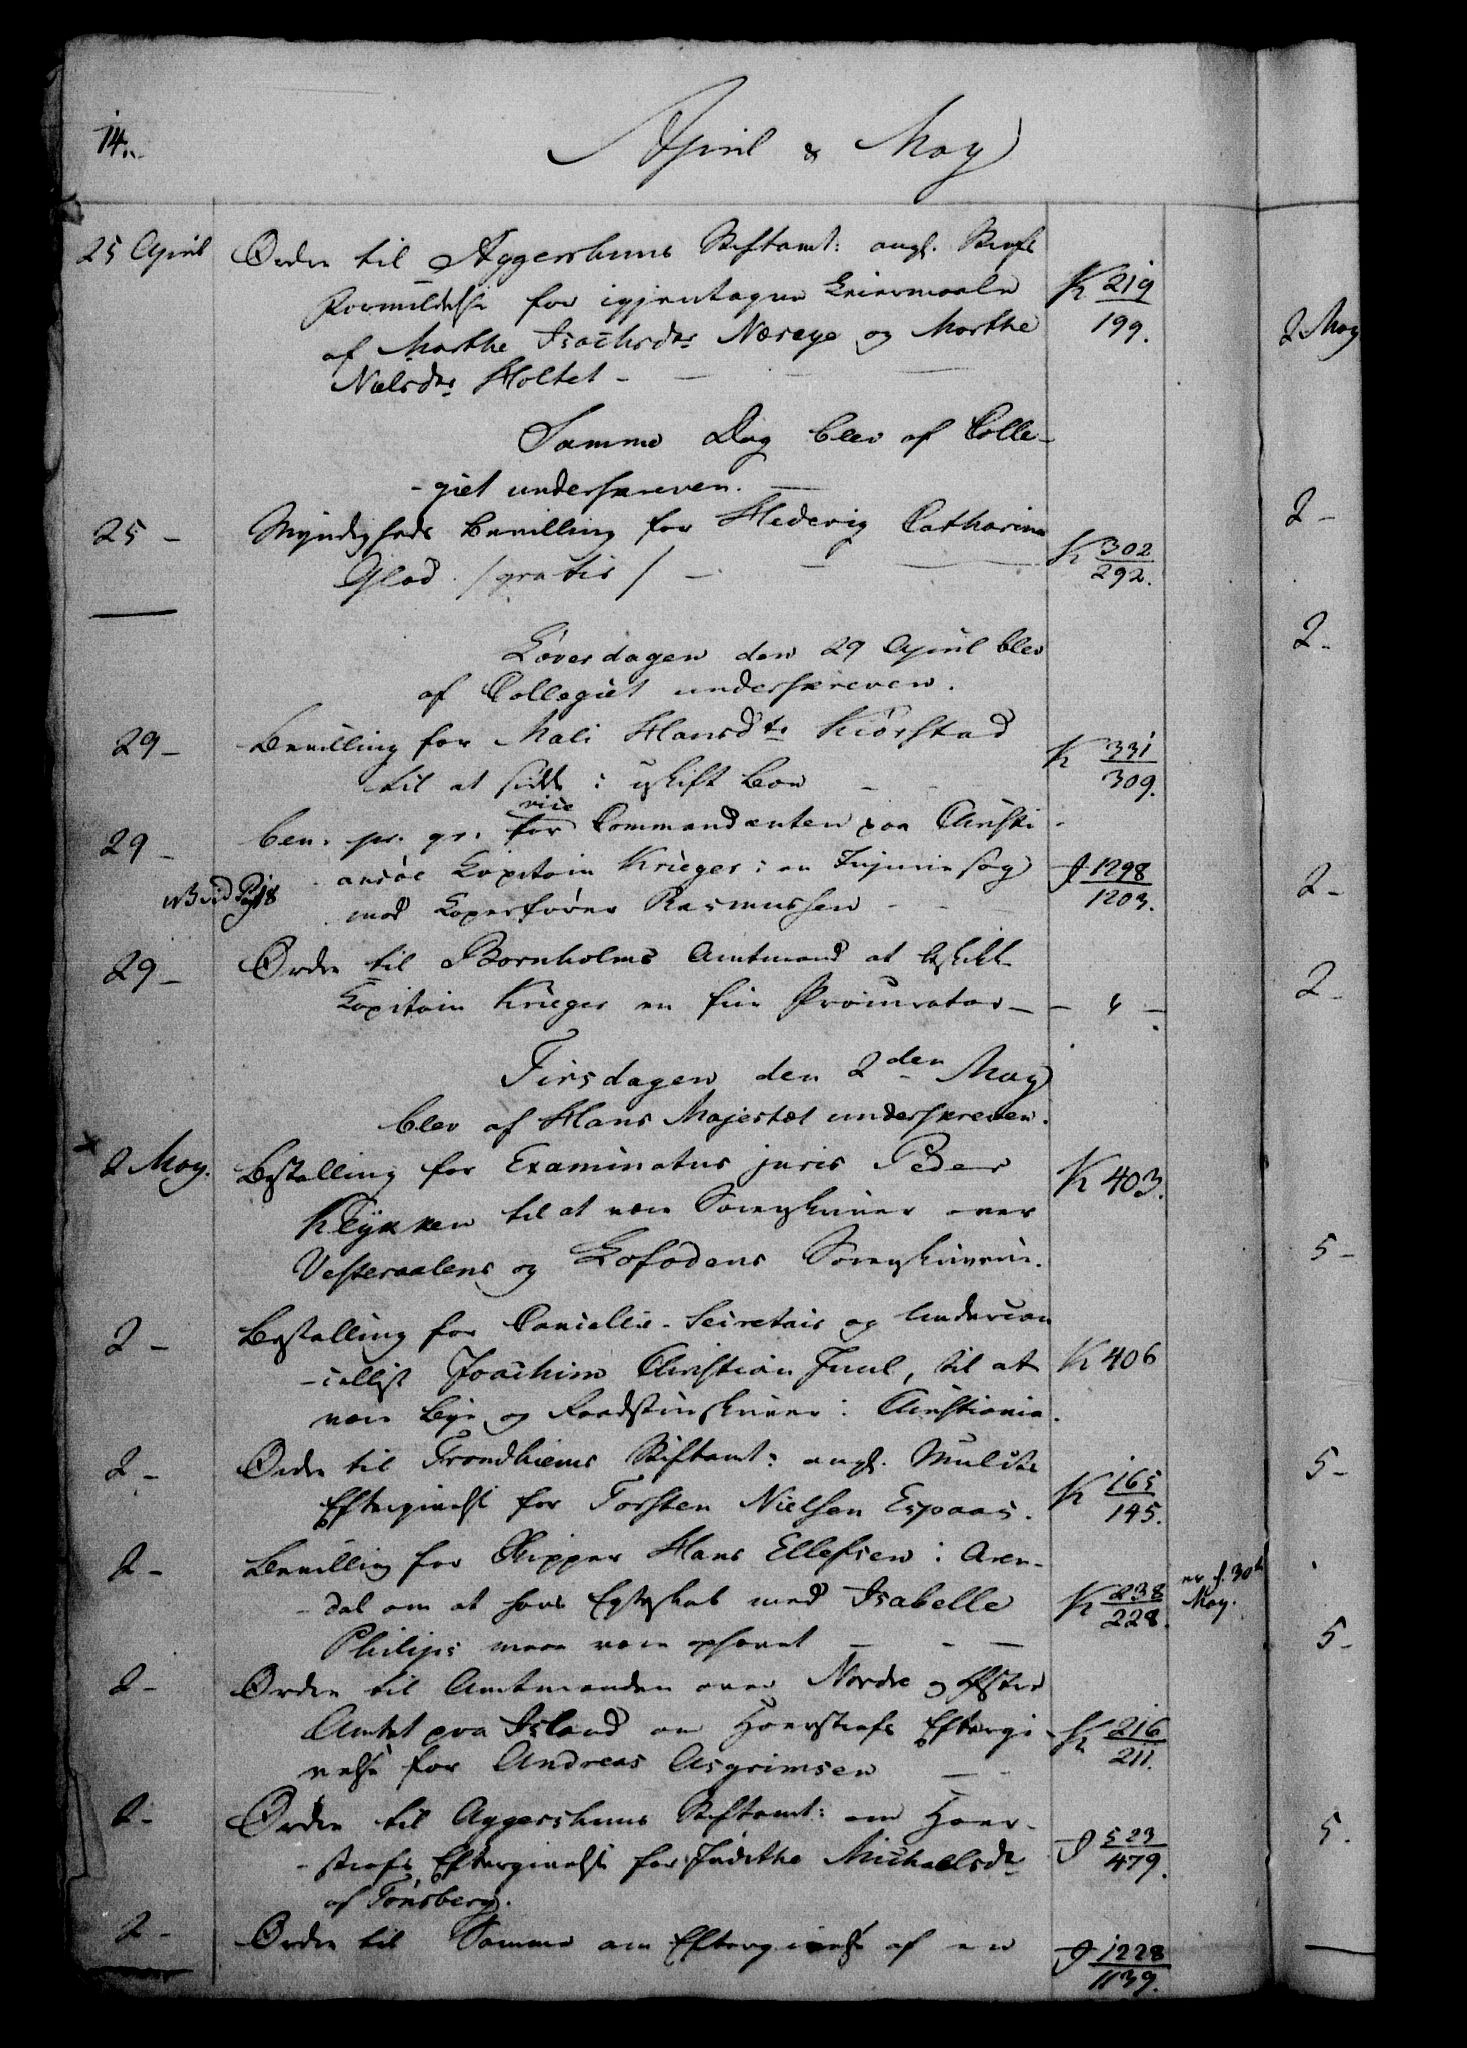 14.
April & May
25 April Ordre til Aggershuus Stiftamt: angl. Straffs K 219/199.
Formildelse for igjentagne Leiermaale
af Marthe Isachsdr Næreye og Marthe
Nielsdr Holtet -
Samme Dag blev af Colle-
-giet underskreven.
25 - Myndigheds Bevilling for Hedevig Catharina K 302/292.
Glad /gratis/ -
Løverdagen den 29 April blev
af Collegiet underskreven.
29 - Bevilling for Mali Hansdtr Kiørstad K 331/309.
til at sidde i uskift Boe -
29 - ben. pr. gr. for vice Commandanten paa Christi-
ansøe Kapitain Krieger i en Injurie sag J 1298/1203.
NB vid Pag 18
mod Kaperfører Rasmussen -
29 - Ordre til Bornholms Amtmand at beskikke
Kapitain Krieger en frie Procurator - - " -
Tirsdagen den 2den May
blev af Hans Majestæt underskreven.
2 May. Bestalling for Examinatus juris Peder K 403.
til at være Sorenskriver over
Vesteraalens og Lofodens Sorenskriverie.
2 - Bestalling for Cancellie-Secretair og Undercan
-cellist Joachim Christian Juul, til at K 406
være Bye og Raadstueskriver i Christiania.
2 - Ordre til Trondhiems Stiftamt: angl. Mulcts
Eftergivelse for Torsten Nielsen Espaas. K 165/145.
2 - Bevilling for Skipper Hans Ellefsen i Aren-
-dal om at hans Egteskab med Isabelle K 238/228. 30te May.
Philips maae være ophævet -
2 - Ordre til Amtmanden over Nordre og Østre
Amtet paa Island om Hoerstraffs Eftergi- K 216/211.
velse for Andreas Asgrimsen -
2 - Ordre til Aggershuus Stiftamt: om Hoer-
-straffs Eftergivelse for Judithe Michaelsdr J 523/479.
af Tønsberg.
2 - Ordre til Samme om Eftergivelse af en J 1228/1139.
2 May
2 -
2 -
2 -
2 -
5 -
5 -
5 -
5.